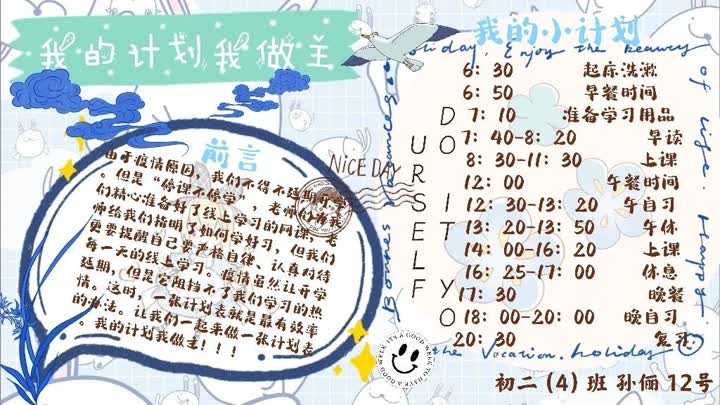 我的计划我做主
前言
由于疫情原因，我们不得不延期开学
。但是“停课不停学”，老师们为我
们精心准备好了线上学习的网课，老
师给我们指明了如何学好习，但我们
更要提醒自己要严格自律、认真对待
每一天的线上学习。疫情虽然让开学
延期，但是它阻挡不了我们学习的热
情。这时，一张计划表就是最有效率
的办法。让我们一起来做一张计划表
。我的计划我做主！！！
NiCE DAY
我的小计划
holiday. Enjoy the beauty
of life. Happy
6：30 起床洗漱
6：50 早餐时间
7：10 准备学习用品
7：40-8：20 早读
8：30-11：30 上课
12：00 午餐时间
12：30-13：20 午自习
13：20-13：50 午休
14：00-16：20 上课
16：25-17：00 休息
17：30 晚餐
18：00-20：00 晚自习
20：30 复习
DO
IT
YO
URSELF
the vocation. holiday
初二 (4) 班 孙俪 12号